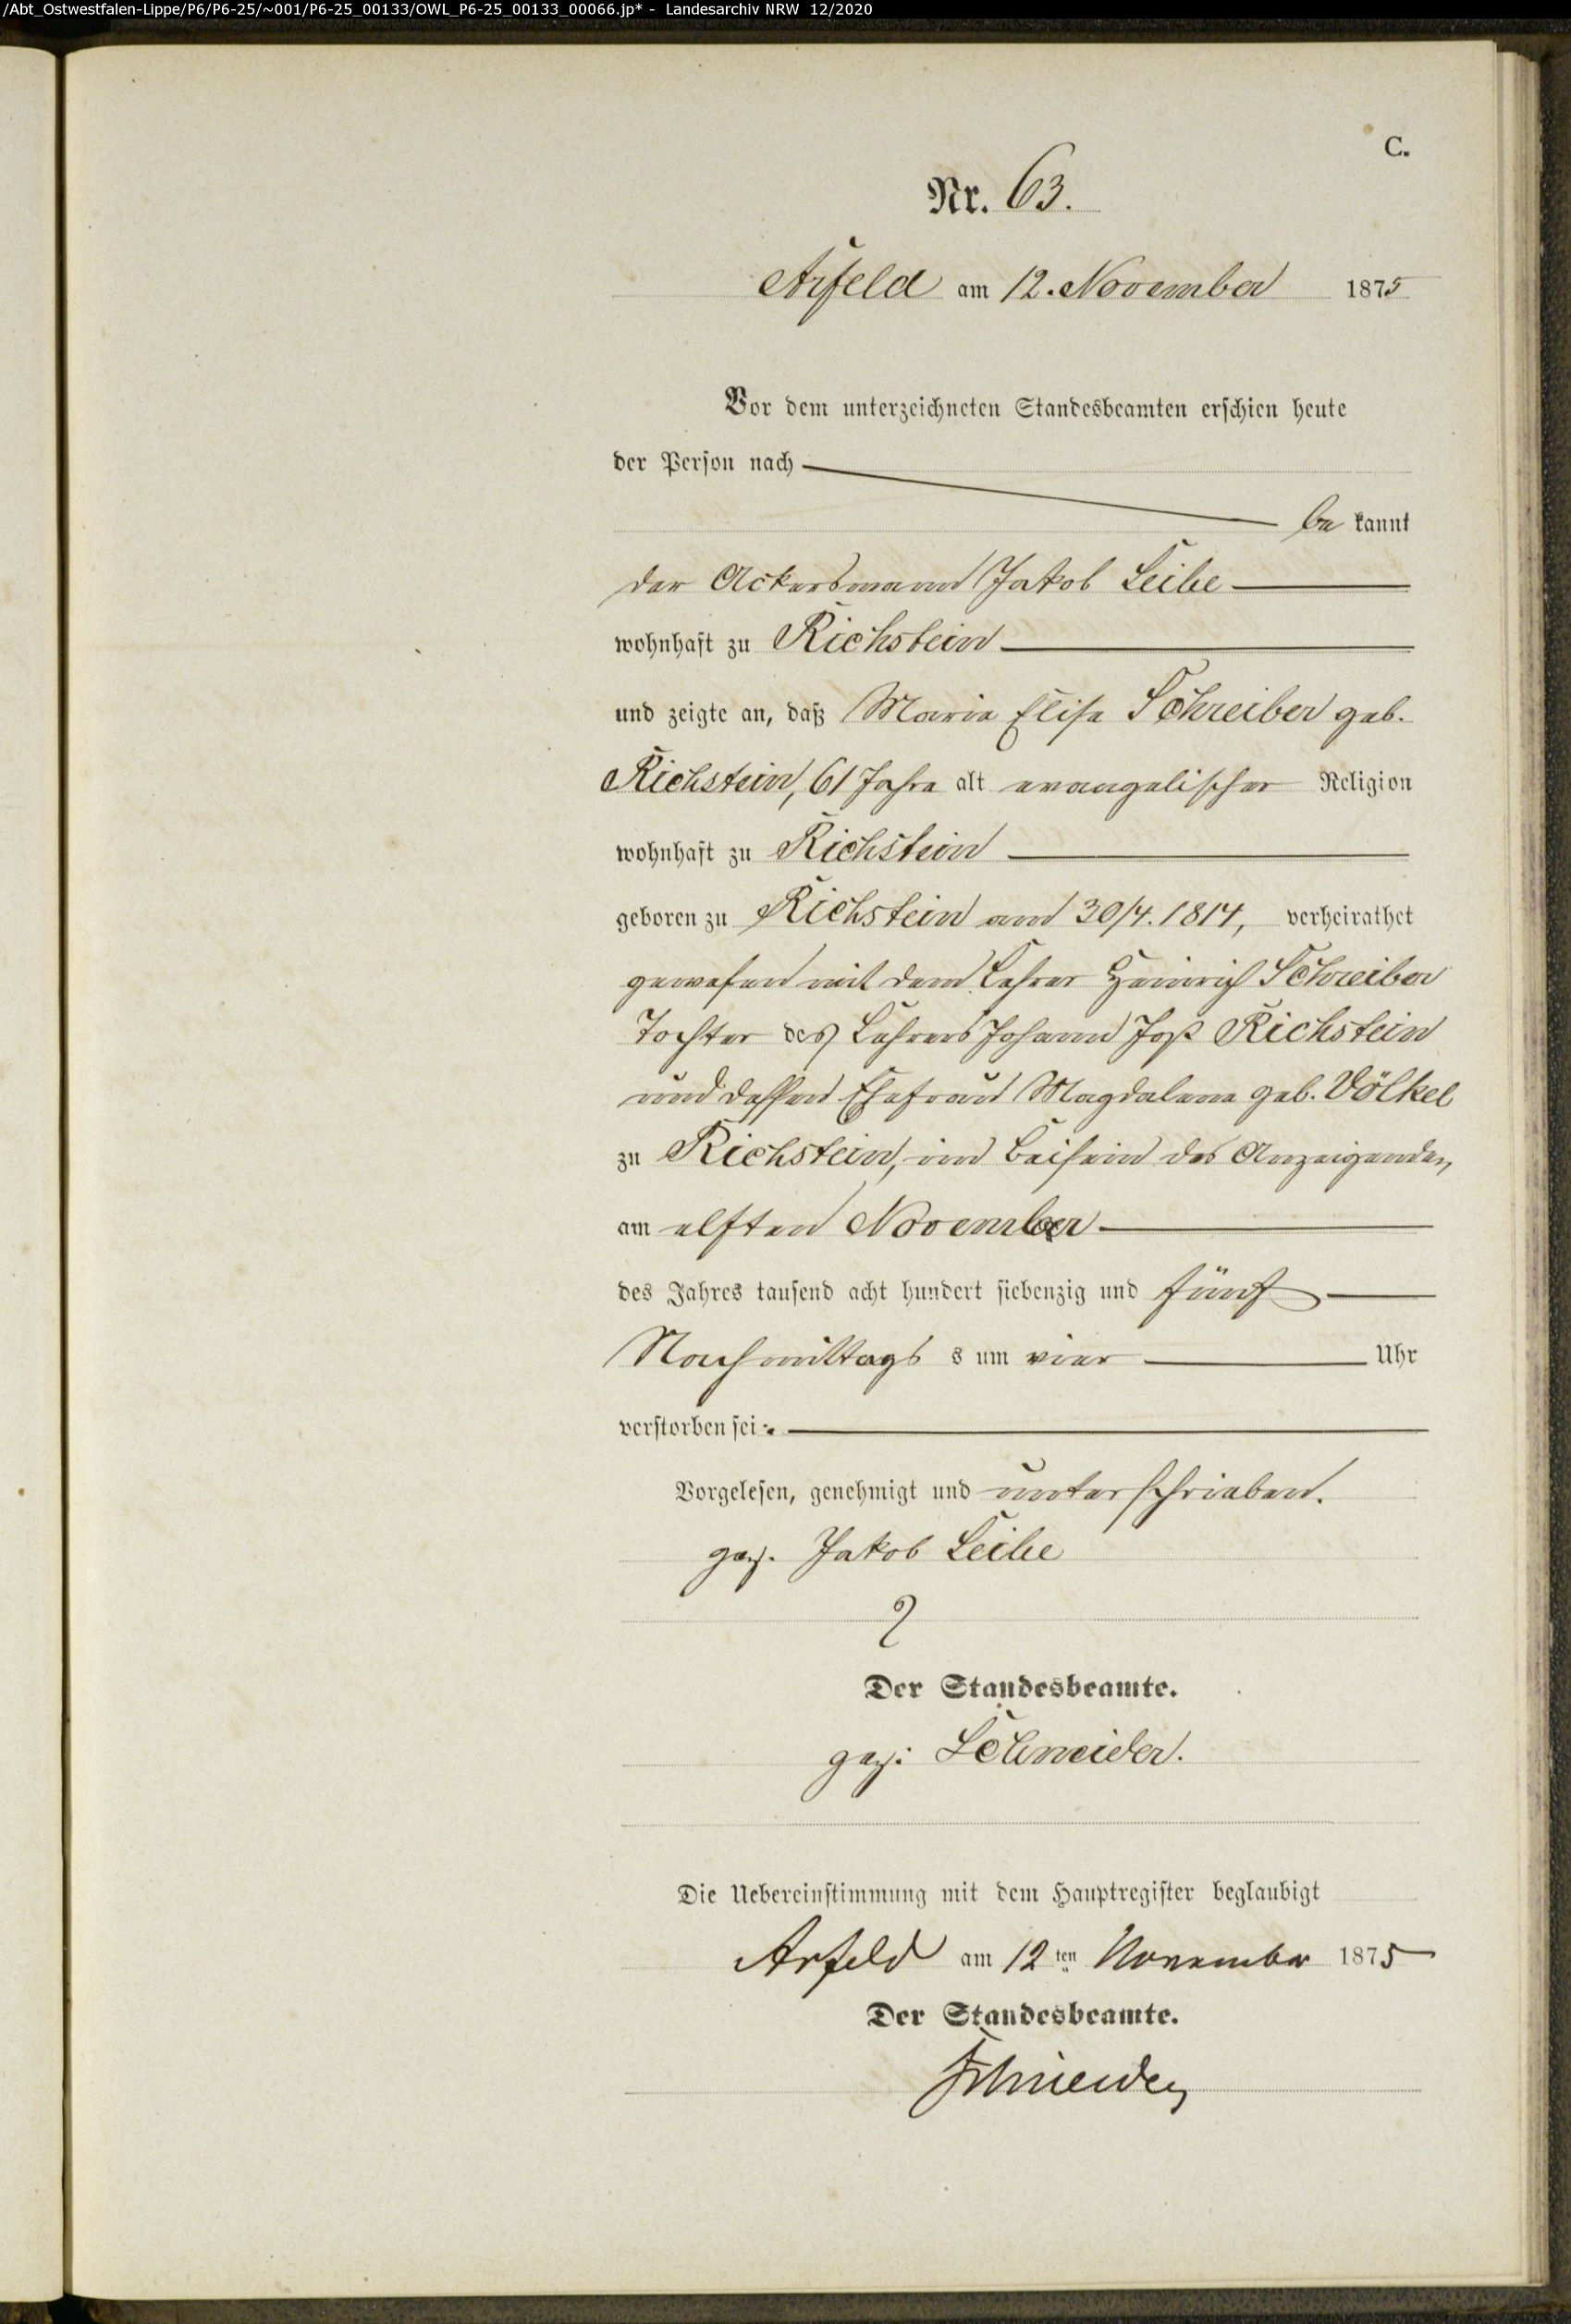 /Abt_Ostwestfalen-Lippe/P6/P6-25/~001/P6-25_00133/OWL_P6-25_00133_00066.jp* - Landesarchiv NRW 12/2020
C.
Nr. 63.
Arfeld am 12. November 1875
Vor dem unterzeichneten Standesbeamten erschien heute
der Person nach
be kannt
der Ackersmann Jakob Leibe
wohnhaft zu Richstein
und zeigte an, daß Maria Elise Schreiber geb.
Richstein, 61 Jahre alt evangelischer Religion
wohnhaft zu Richstein
geboren zu Richstein am 30/4. 1814, verheirathet
gewesen mit dem Lehrer Heinrich Schreiber
Tochter des Lehrers Johann Jost Richstein
und dessen Ehefrau Magdalene geb. Völkel
zu Richstein, im Beisein des Anzeigenden,
am elften November
des Jahres tausend acht hundert siebenzig und fünf
Nachmittags s um vier Uhr
verstorben sei.
Vorgelesen, genehmigt und unterschrieben.
gez. Jakob Leibe
Der Standesbeamte.
gez: Schneider.
Die Uebereinstimmung mit dem Hauptregister beglaubigt
Arfeld am 12 ten November 1875
Der Standesbeamte.
Schneider